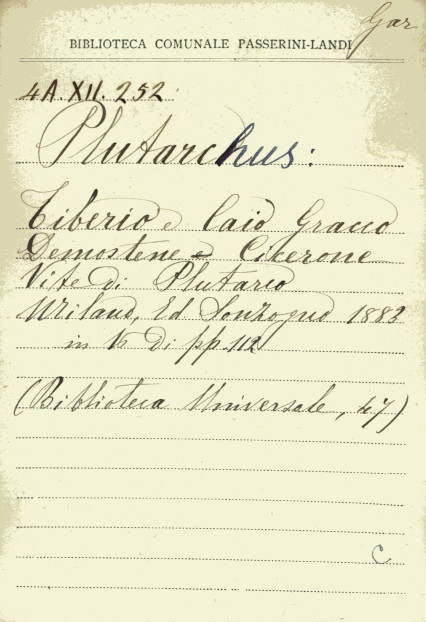 Gar
BIBLIOTECA COMUNALE PASSERINI-LANDI
4A.XII.252
Plutarchus:
Tiberio e Caio Gracco
Demostene e Cicerone
Vite di Plutarco
Milano, Ed Sonzogno 1883
in 16 di pp 112
(Biblioteca Universale, 47)
C